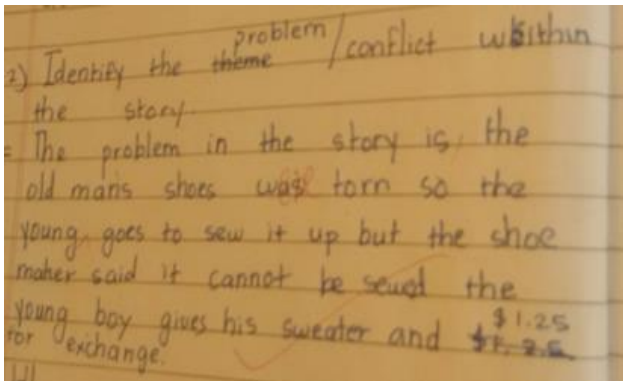 2) Identify the problem / conflict within
the story.
= The problem in the story is, the
old man's shoes was torn so the
young goes to sew it up but the shoe
maher said it cannot be sewd the
young boy gives his sweater and $1.25
for exchange.